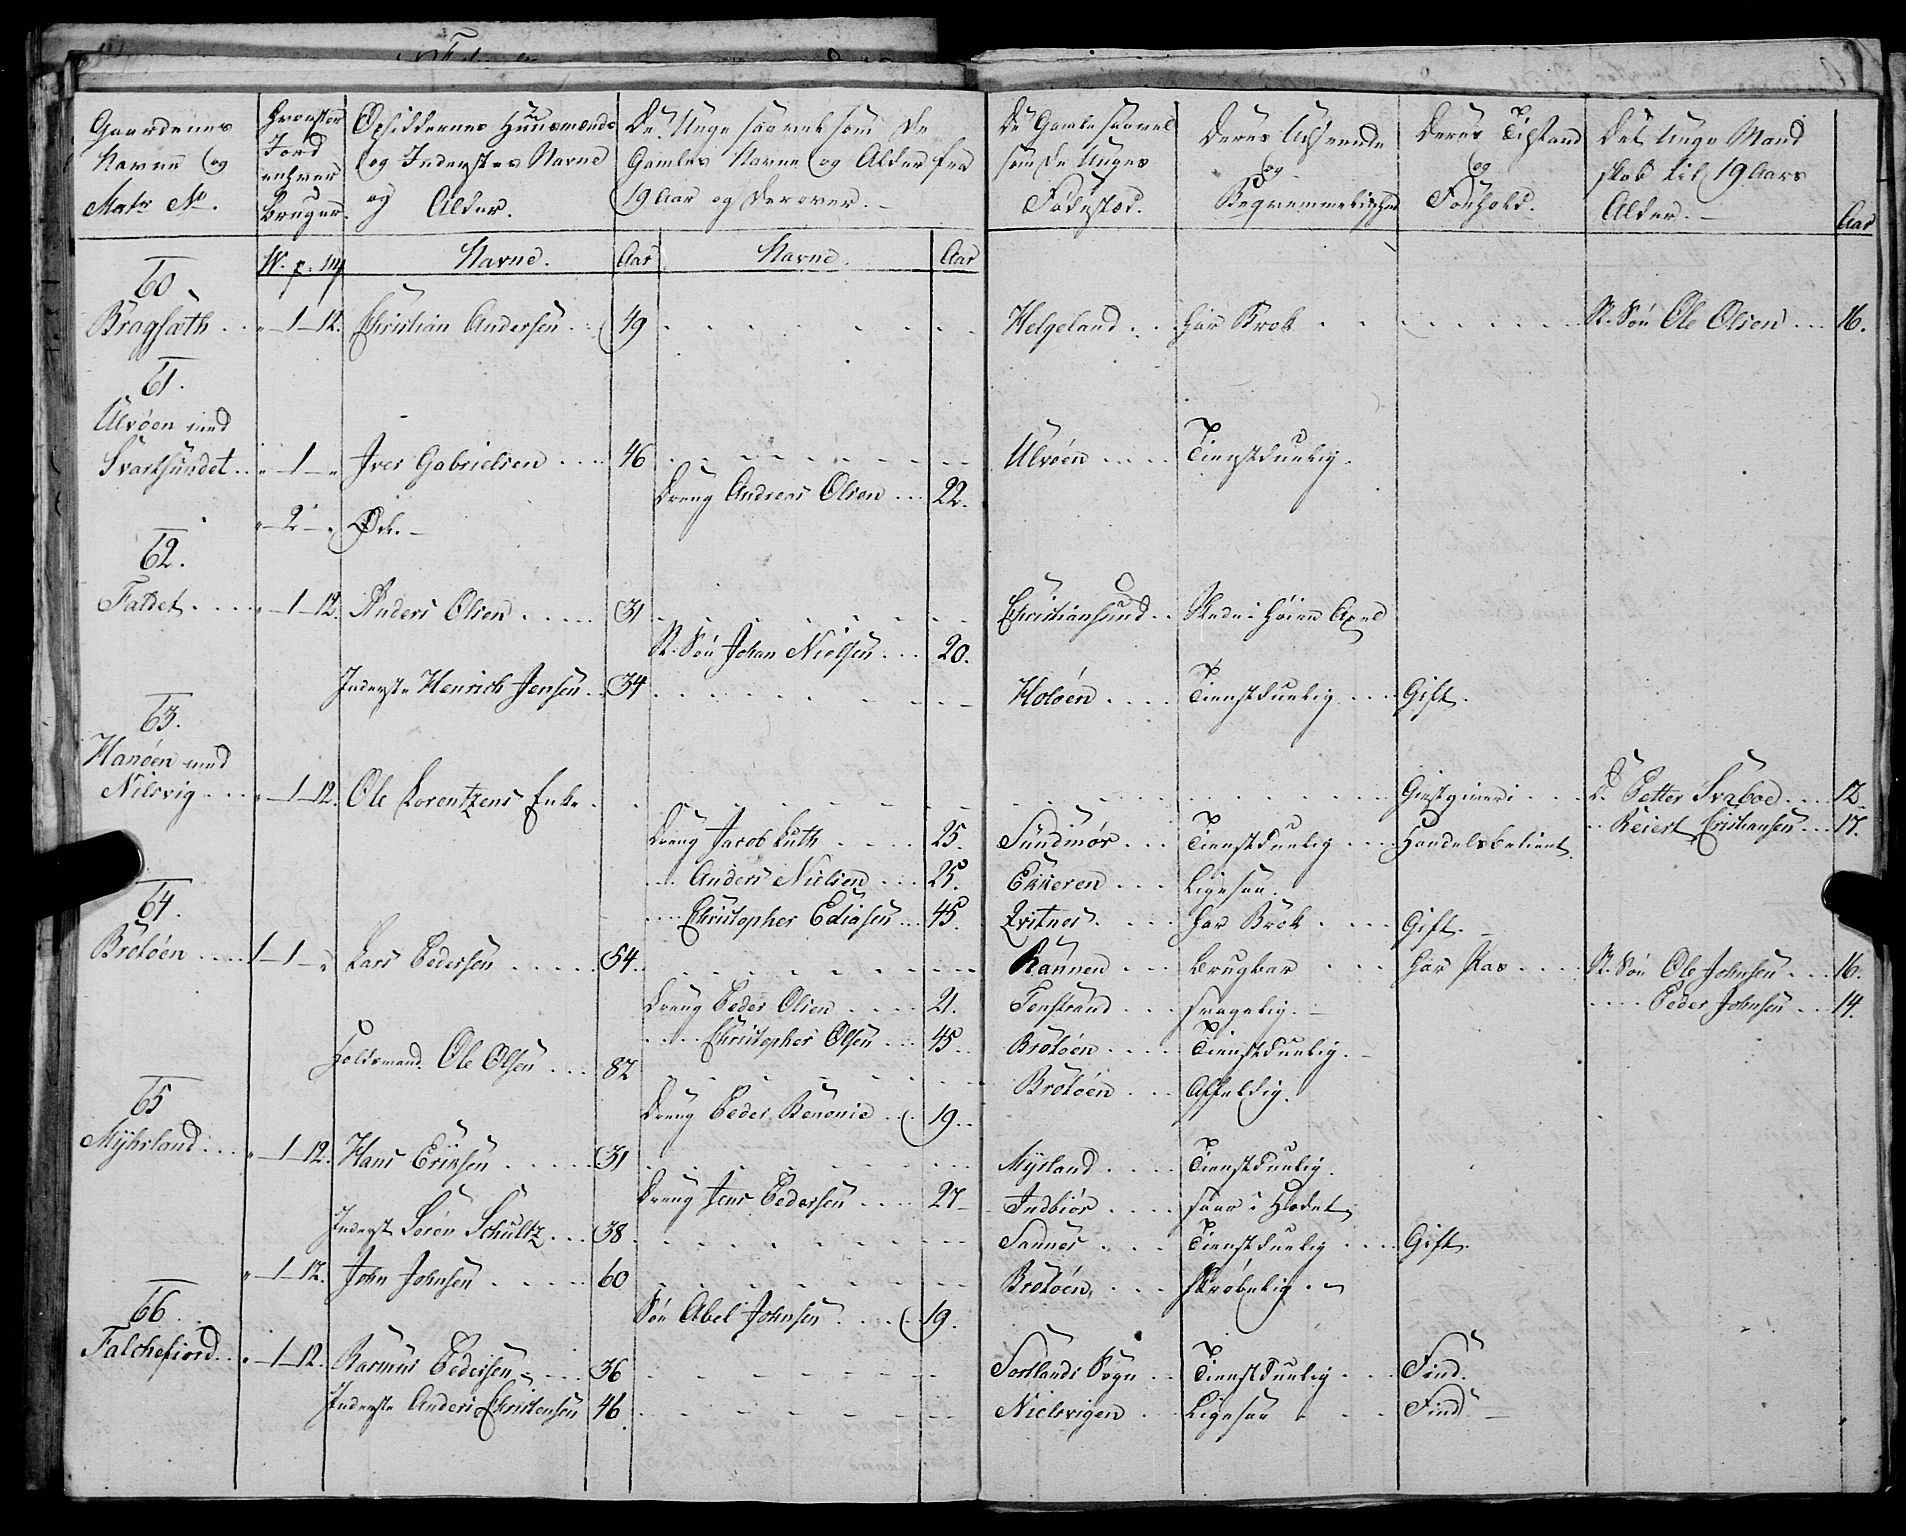 Gaardenes Navne og Matr No.
Hvorstor Jord enhver Bruger.
Opsiddernes Huusmænds og Inderstes Navne og Alder.
De Unge saavelsom De Gamles Navne og Alder fra 19 Aar og derover.
De Gamle saavel som de Unges Fødested.
Deres Udseende og Beqvemmelighed
Deres Tilstand og Forhold.
Det Unge Mandskab til 19 Aars Alder.
Aar
W. p. mk
Navne. Aar Navne. Aar
60
Bragsæth . . „ - 1 - 12. Christian Andersen . . 49 Helgeland . . har Brok St. Søn Ole Olsen . . . 16.
61.
Ulvøen med
Svartsundet . . „ - 1 - „ Iver Gabrielsen . . . . 46 Ulvøen . . . . Tienstduelig.
Dreng Andreas Olsen . . . 22.
„ - 2 - „ Øde. -
62.
Faldet . . . . „ - 1 - 12. Anders Olsen . . . . . 31 Christiansund . . Skade i høire Axel
St. Søn Johan Nielsen . . . 20.
Inderste Henrich Jensen . . 34 Holøen . . . . Tienstduelig . . . . Gift.
63.
Hanøen med
Nilsvig . . . „ - 1 - 12. Ole Lorentzens Enke . Giestgiveri . . . D. Petter Svaboe . . . 12
Dreng Jacob Luth . . . . 25. Sundmør . . . Tienstduelig . . . Handelsbetient. . . Reiert Cristiansen . . . 17.
. . . Anders Nielsen . . . 25. Ekkeren . . . Ligesaa.
. . . . Christopher Ediasen . . . 45. Qvitnes . . . . har Brok . . . . Gift. -
64.
Brotøen . . . . 1 - 1 - „ Lars Pedersen . . . . . 54. Rannen . . . Brugbar . . . har Pas . . . . St. Søn Ole Johnsen . . . 16.
Dreng Peder Olsen . . . . 21. Fenstrand . . . svagelig. - . . . . Peder Johnsen . . . 14.
. . . . Christopher Olsen . . . 45. Brotøen . . . . Tienstduelig. -
Holdsmand. Ole Olsen . . . 82 Brotøen . . . Affeldig.
Dreng Peder Benonie . . . 19. .
65
Myhrland . . . „ - 1 - 12. Hans Eriksen . . . . . 31 Myrland . . . . Tienstduelig.
Dreng Jens Pedersen . . . . 27 Indbiør . . . . saar i Hodet
Inderst Sørén Schultz . . . 38 Sannes . . . . Tienstduelig . . . . Gift.
„ - 1 - 12. John Johnsen . . . . . 60 Brotøen, . . . skrøbelig.
Søn Abel Johnsen . . . . 19.
66.
Falchefiord . . „ - 1 - 12. Rasmus Pedersen . . . . 36 Sortlands Sogn . . Tienstduelig . . . Find.
Inderste Anders Christensen 46. Nielsvigen . . Ligesaa . . . Find -